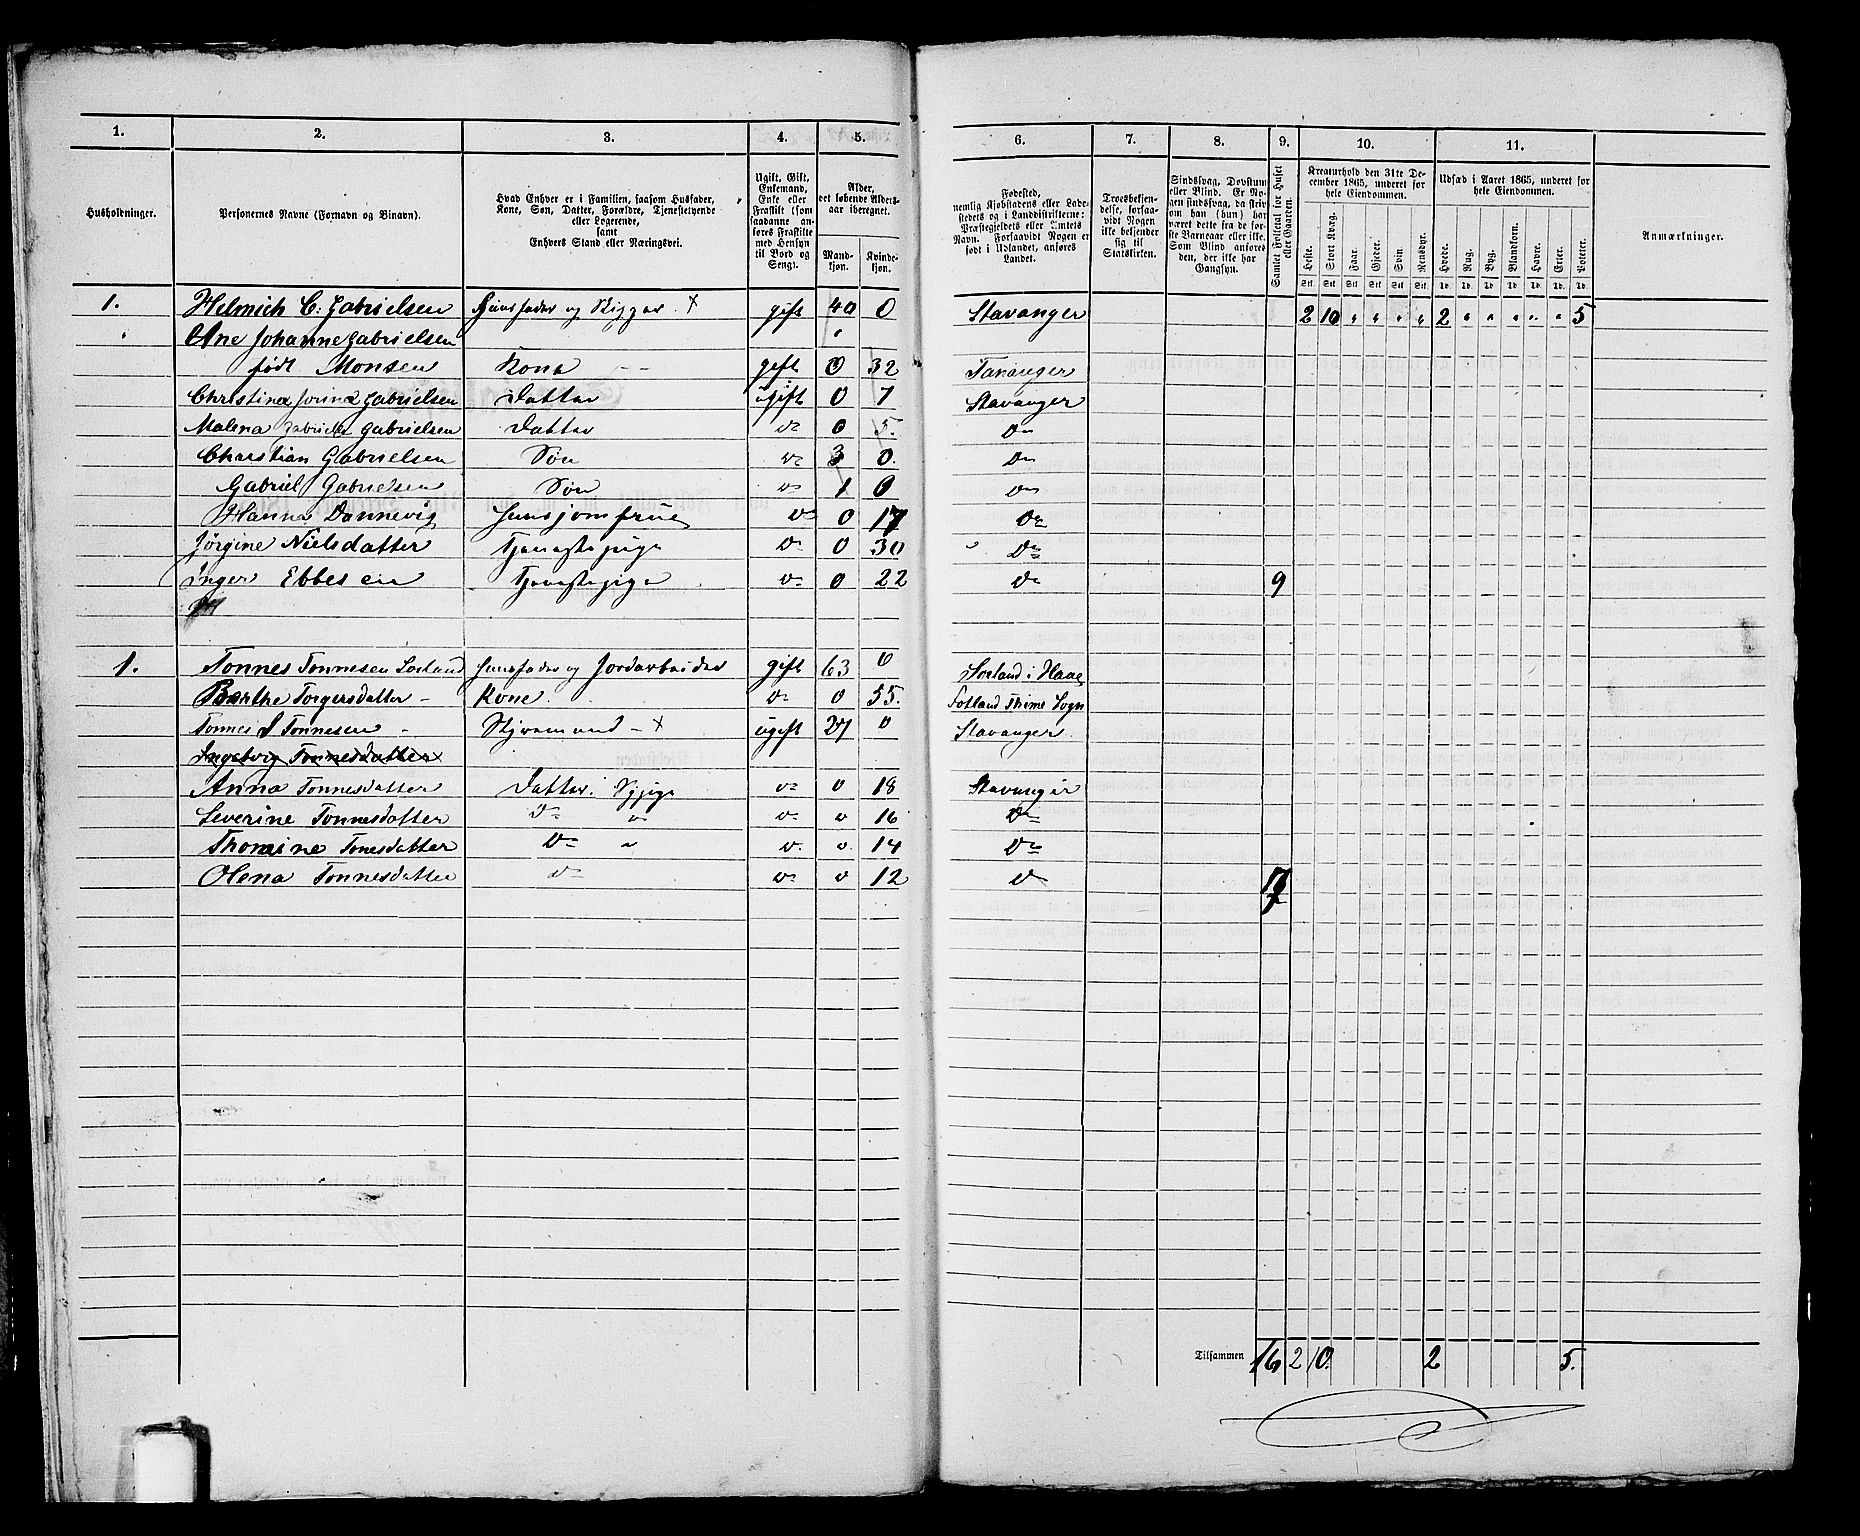 1. 2. 3. 4. 5. 6. 7. 8. 9. 10. 11.
Husholdninger.
Personernes Navne (Fornavn og Binavn).
Hvad Enhver er i Familien, saasom Husfader,
Kone, Søn, Datter, Forældre, Tjenestetyende
eller Logerende,
samt
Enhvers Stand eller Næringsvei.
Ugift, Gift,
Enkemand,
Enke eller
Fraskilt (som
saadanne an-
føres Fraskilte
med Hensyn
til Bord og
Seng).
Alder,
det løbende Alders-
aar iberegnet.
Mand-
kjøn.
Kvinde-
kjøn.
Fødested,
nemlig Kjøbstadens eller Lade-
stedets og i Landdistrikterne:
Præstegjeldets eller Amtets
Navn. Forsaavidt Nogen er
født i Udlandet, anføres
Landet.
Troesbekjen-
delse, forsaa-
vidt Nogen
ikke bekjender
sig til
Statskirken.
Sindssvag, Døvstum
eller Blind. Er No-
gen sindssvag, da skriv
om han (hun) har
været dette fra de før-
ste Barneaar eller ikke.
Som Blind anføres
den, der ikke har
Gangsyn.
Samlet Folketal for Huset
eller Gaarden.
Kreaturhold den 31te De-
cember 1865, underet for
hele Eiendommen.
Heste. Stort Kvæg. Faar. Gjeder. Svin. Rensdyr.
Stk. Stk. Stk. Stk. Stk. Stk.
Udsæd i Aaret 1865, underet for
hele Eiendommen.
Hvede. Rug. Byg. Blandkorn. Havre. Erter. Poteter.
Td. Td. Td. Td. Td. Td. Td.
Anmærkninger.
1. Helmich C. Gabrielsen Huusfader og Skipper × gift 40 0 Stavanger 2 10 " " " " 2 " " " " " 5
" Ane Johanne Gabrielsen
født Monsen Kone gift 0 32 Tananger
Christina Jorina Gabrielsen Datter ugift 0 7 Stavanger
Malena Gabrielle Gabrielsen Datter do 0 5. Do
Christian Gabrielsen Søn do 3 0. Do
Gabriel Gabrielsen Søn do 1 0 Do
Hanna Dannevig Huusjomfrue do 0 17 Do
Jörgine Nielsdatter Tjenestepige Do 0 30 " Do
Inger Ebbesen Tjenestepige Do 0 22 Do 9
1. Tonnes Tonnesen Soeland Huusfader og Jordarbeider gift 63 0 Soeland i Haae
Berthe Torgersdatter - Kone. Do 0 55. Fotland Thime Sogn
Tonnes T Tonnesen - Styrmand - × ugift 27 0 Stavanger
Ingeborg Tonnesdatter
Anna Tonnesdatter Datter. Do 0 18 Stavanger
Severine Tonnesdatter Do " Do o 16 Do
Thomine Tonesdatter Do " Do. o. 14 Do
Olena Tonnesdatter Do Do o 12 Do 7
Tilsammen 16 2 10. 2 5.